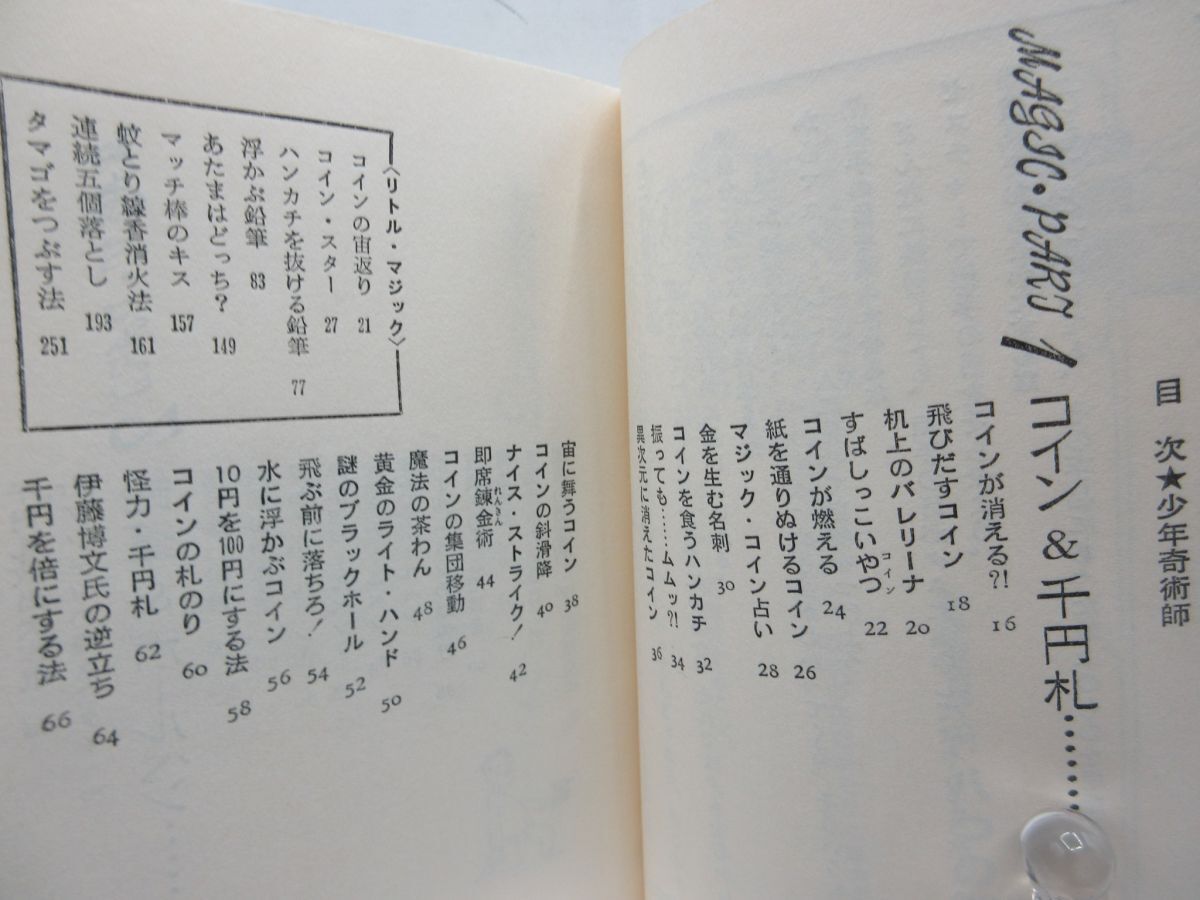 目次★少年奇術師
MAGIC・PART 1 コイン&千円札………
コインが消える?! 16
飛びだすコイン 18
机上のバレリーナ 20
すばしっこいやつ コイン 22
コインが燃える 24
紙を通りぬけるコイン 26
マジック・コイン占い 28
金を生む名刺 30
コインを食うハンカチ 32
振っても……ムムッ?! 34
異次元に消えたコイン 36
宙に舞うコイン 38
コインの斜滑降 40
ナイス・ストライク! 42
即席錬金術 れんきん 44
コインの集団移動 46
魔法の茶わん 48
黄金のライト・ハンド 50
謎のブラックホール 52
飛ぶ前に落ちろ! 54
水に浮かぶコイン 56
10円を100円にする法 58
コインの札のり 60
怪力・千円札 62
伊藤博文氏の逆立ち 64
千円を倍にする法 66
〈リトル・マジック〉
コインの宙返り 21
コイン・スター 27
ハンカチを抜ける鉛筆 77
浮かぶ鉛筆 83
あたまはどっち? 149
マッチ棒のキス 157
蚊とり線香消火法 161
連続五個落とし 193
タマゴをつぶす法 251